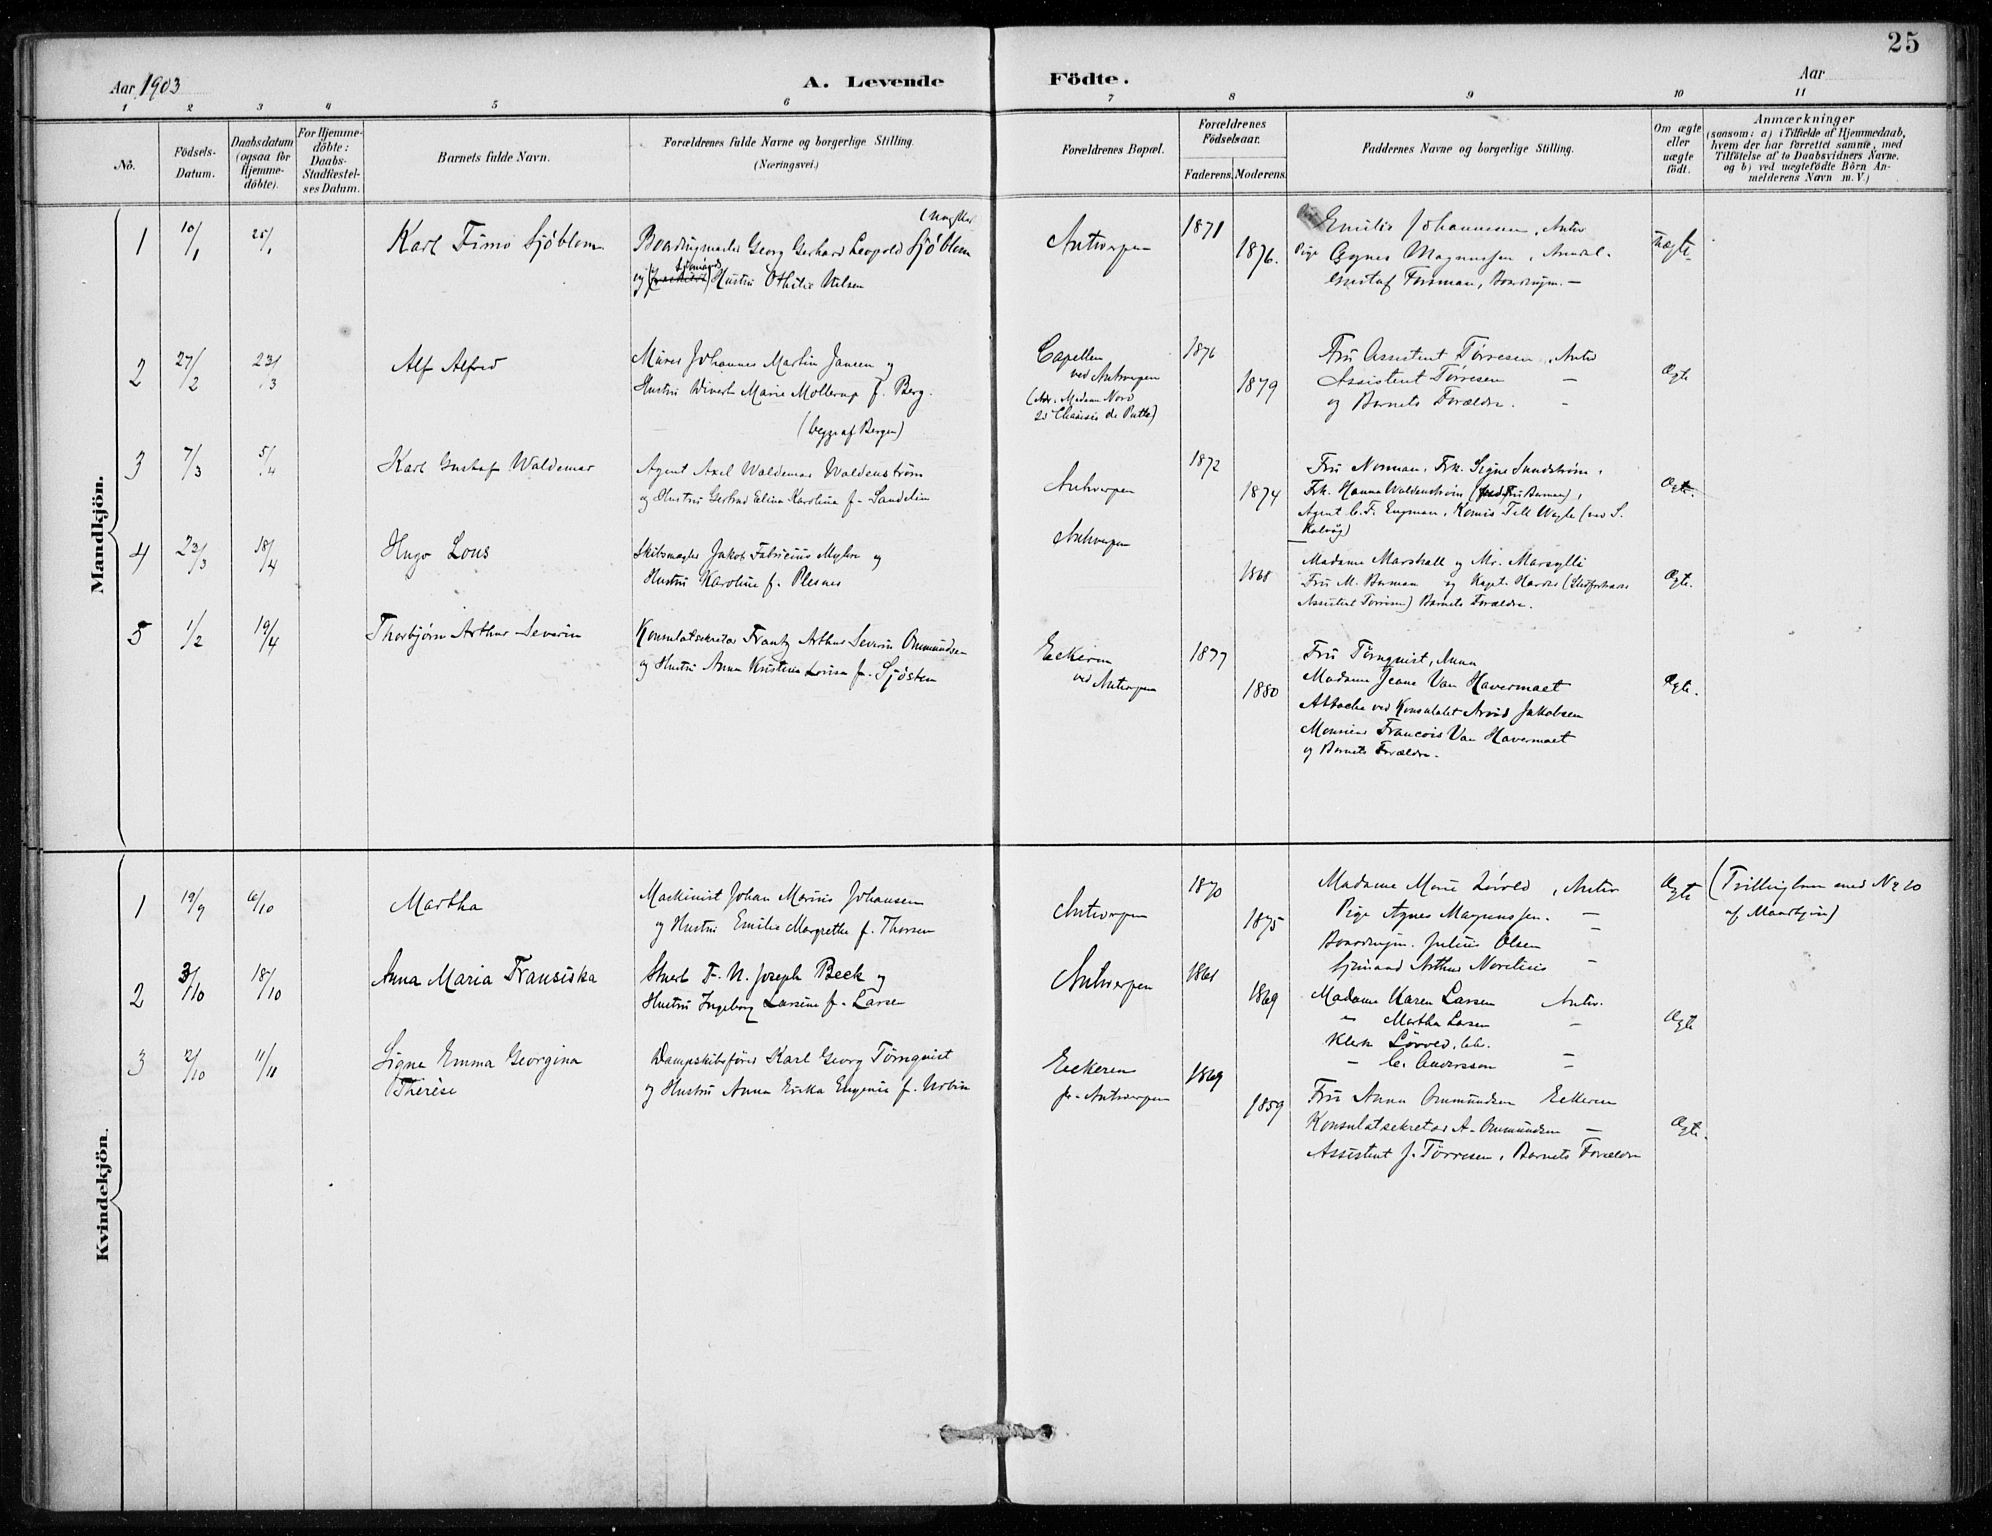 25
Aar 1903
A. Levende
Födte.
Aar
1 2 3 4 5 6 7 8 9 10 11
No.
Födsels-Datum.
Daabsdatum (ogsaa for Hjemme-döbte).
For Hjemme-döbte: Daabs-Stadfæstel-ses Datum.
Barnets fulde Navn.
Forældrenes fulde Navne og borgerlige Stilling.
(Næringsvei.)
Forældrenes Bopæl.
Forældrenes Födselsaar.
Faderens. Moderens.
Faddernes Navne og borgerlige Stilling.
Om ægte eller uægte födt.
Anmærkninger
(saasom: a) i Tilfælde af Hjemmedaab,
hvem der har forrettet samme, med
Tilföielse af to Daabsvidners Navne.
og b) ved uægtefödte Börn An-
melderens Navn m. V.)
Mandkjön.
1 10/1 25/1
Karl Timo Sjöblom
(ungkar
Georg Gerhard Leopold Sjöblom
og Hustru Othilie Nilsen
Antwerpen
1871
1876.
Emilie Johannessen, Antw
Pige Agnes Magnussen, Arendal.
Gustaf Forsman, Boardingm. —
Uægte
2 27/2 23/3
Alf Alfred
Murer Johannes Martin Jansen og
Hustru Marie Mollerup f. Berg.
(begge af Bergen)
Capellen
ved Antwerpen
(Adr. Madam Nord
de Putte)
1876
1879
Fru Assistent Tørresen, Antw
Assistent Tørresen —
og Barnets Forældre. -
Ægte
3 7/3 5/4
Karl Gustaf Waldemar
Agent Axel Waldemar Waldenstrøm
og Hustru Gertrud Elina Karolina f. Sandelin
Antwerpen
1872
1874
Fru Norman, Frk. Signe Sundstrøm,
Frk. Hanna Waldenstrøm
Agent C. F. Engman,
Ægte
4 23/3 18/4
Hugo Lous
Skibsmægler Jakob Fabricius Myhre og
Hustru Karoline f. Plesner
Antwerpen
1868
Madame Marshall og Mr. Marsylli
Fru M. Berman og Kapt.
Assistent Tørresen) Barnets Forældre.
Ægte.
5 1/2 19/4
Thorbjørn Arthur Severin
Konsulatsekretær Frantz Arthur Severin Ommundsen
og Hustru Anna Kristina Lovisa f. Sjösten
Eckeren
ved Antwerpen
1877
1880
Fru Tørnquist, Anna
Madame Jeane Van Havermaet
Attache ved Konsulatet Arvid Jakobsen
Monsieur Francois Van Havermaet
og Barnets Forældre.
Ægte.
Kvindekjön.
1 19/9 6/10
Martha
Maskinist Johan Marius Johansen
og Hustru Emilie Margrethe f. Thorsen
Antwerpen
1870
1875
Madame Marie Lørved, Antw
Pige Agnes Magnussen. —
Boardingm. Julius Olsen -
Sjömand Arthur Norelius -
Ægte
(Tvillingbarn med No 20
af Mandkjøn)
2 3/10 18/10
Anna Maria Fransiska
Stuert F. N. Joseph Beck og
Hustru Ingeborg Larsine f. Larsen
Antwerpen
1861
1869
Madame Karen Larsen Antw.
" Martha Larsen —
Klerk Lørved,
" C. Anderssen =
Ægte
3 12/10 11/11
Signe Emma Georgina
Therèse
Dampskibsfører Karl Georg Tørnquist
og Hustru Anna Erika Eugenie f. Norbin
Eeckeren
pr. Antwerpen
1869
1859
Fru Anna Ommundsen Eekeren
Konsulatsekretær A. Ommundsen —
Assistent J. Tørresen, Barnets Forældre
Ægte.